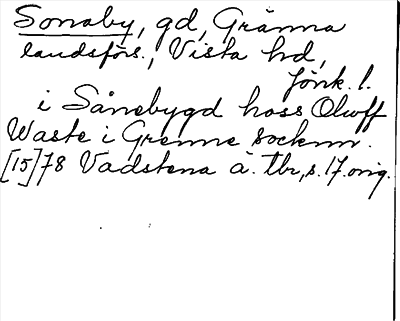 Sonaby, gd, Gränna
landsförs., Vista hd,
Jönk. l.
i Sånebygd hoss Olwff
Waste i Grenne socknn.
[15]78 Vadstena à. tbr, s. 17. orig.